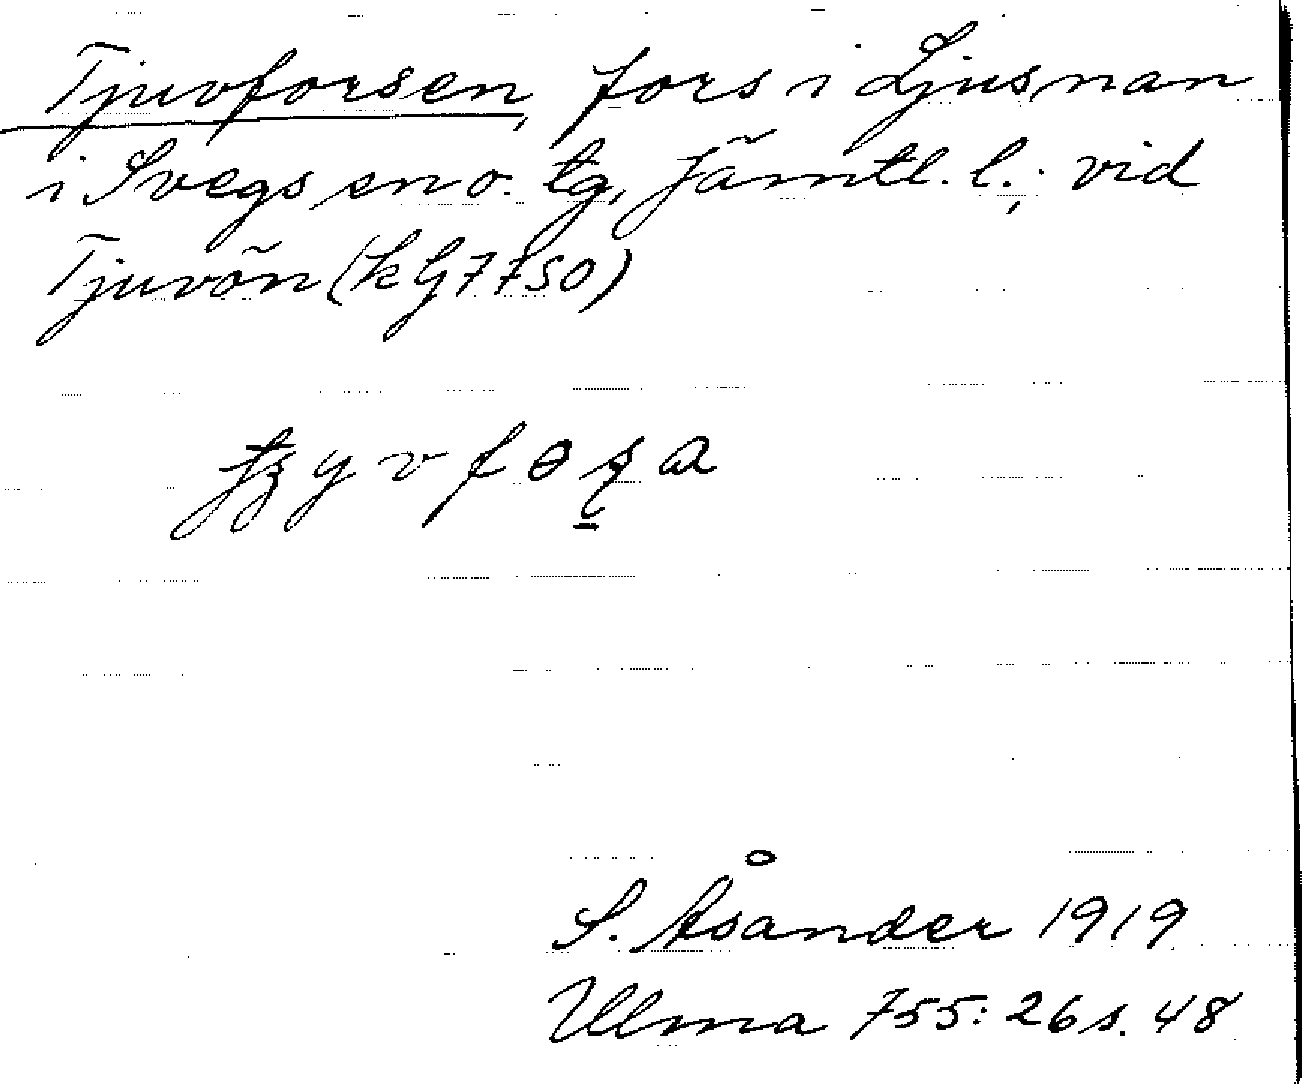 Tjuvforsen, fors i Ljusnan
i Svegs sn o. tg, Jämtl. l.; vid
Tjuvön (k G7750)
S. Åsander 1919
Ulma 755: 26 s. 48